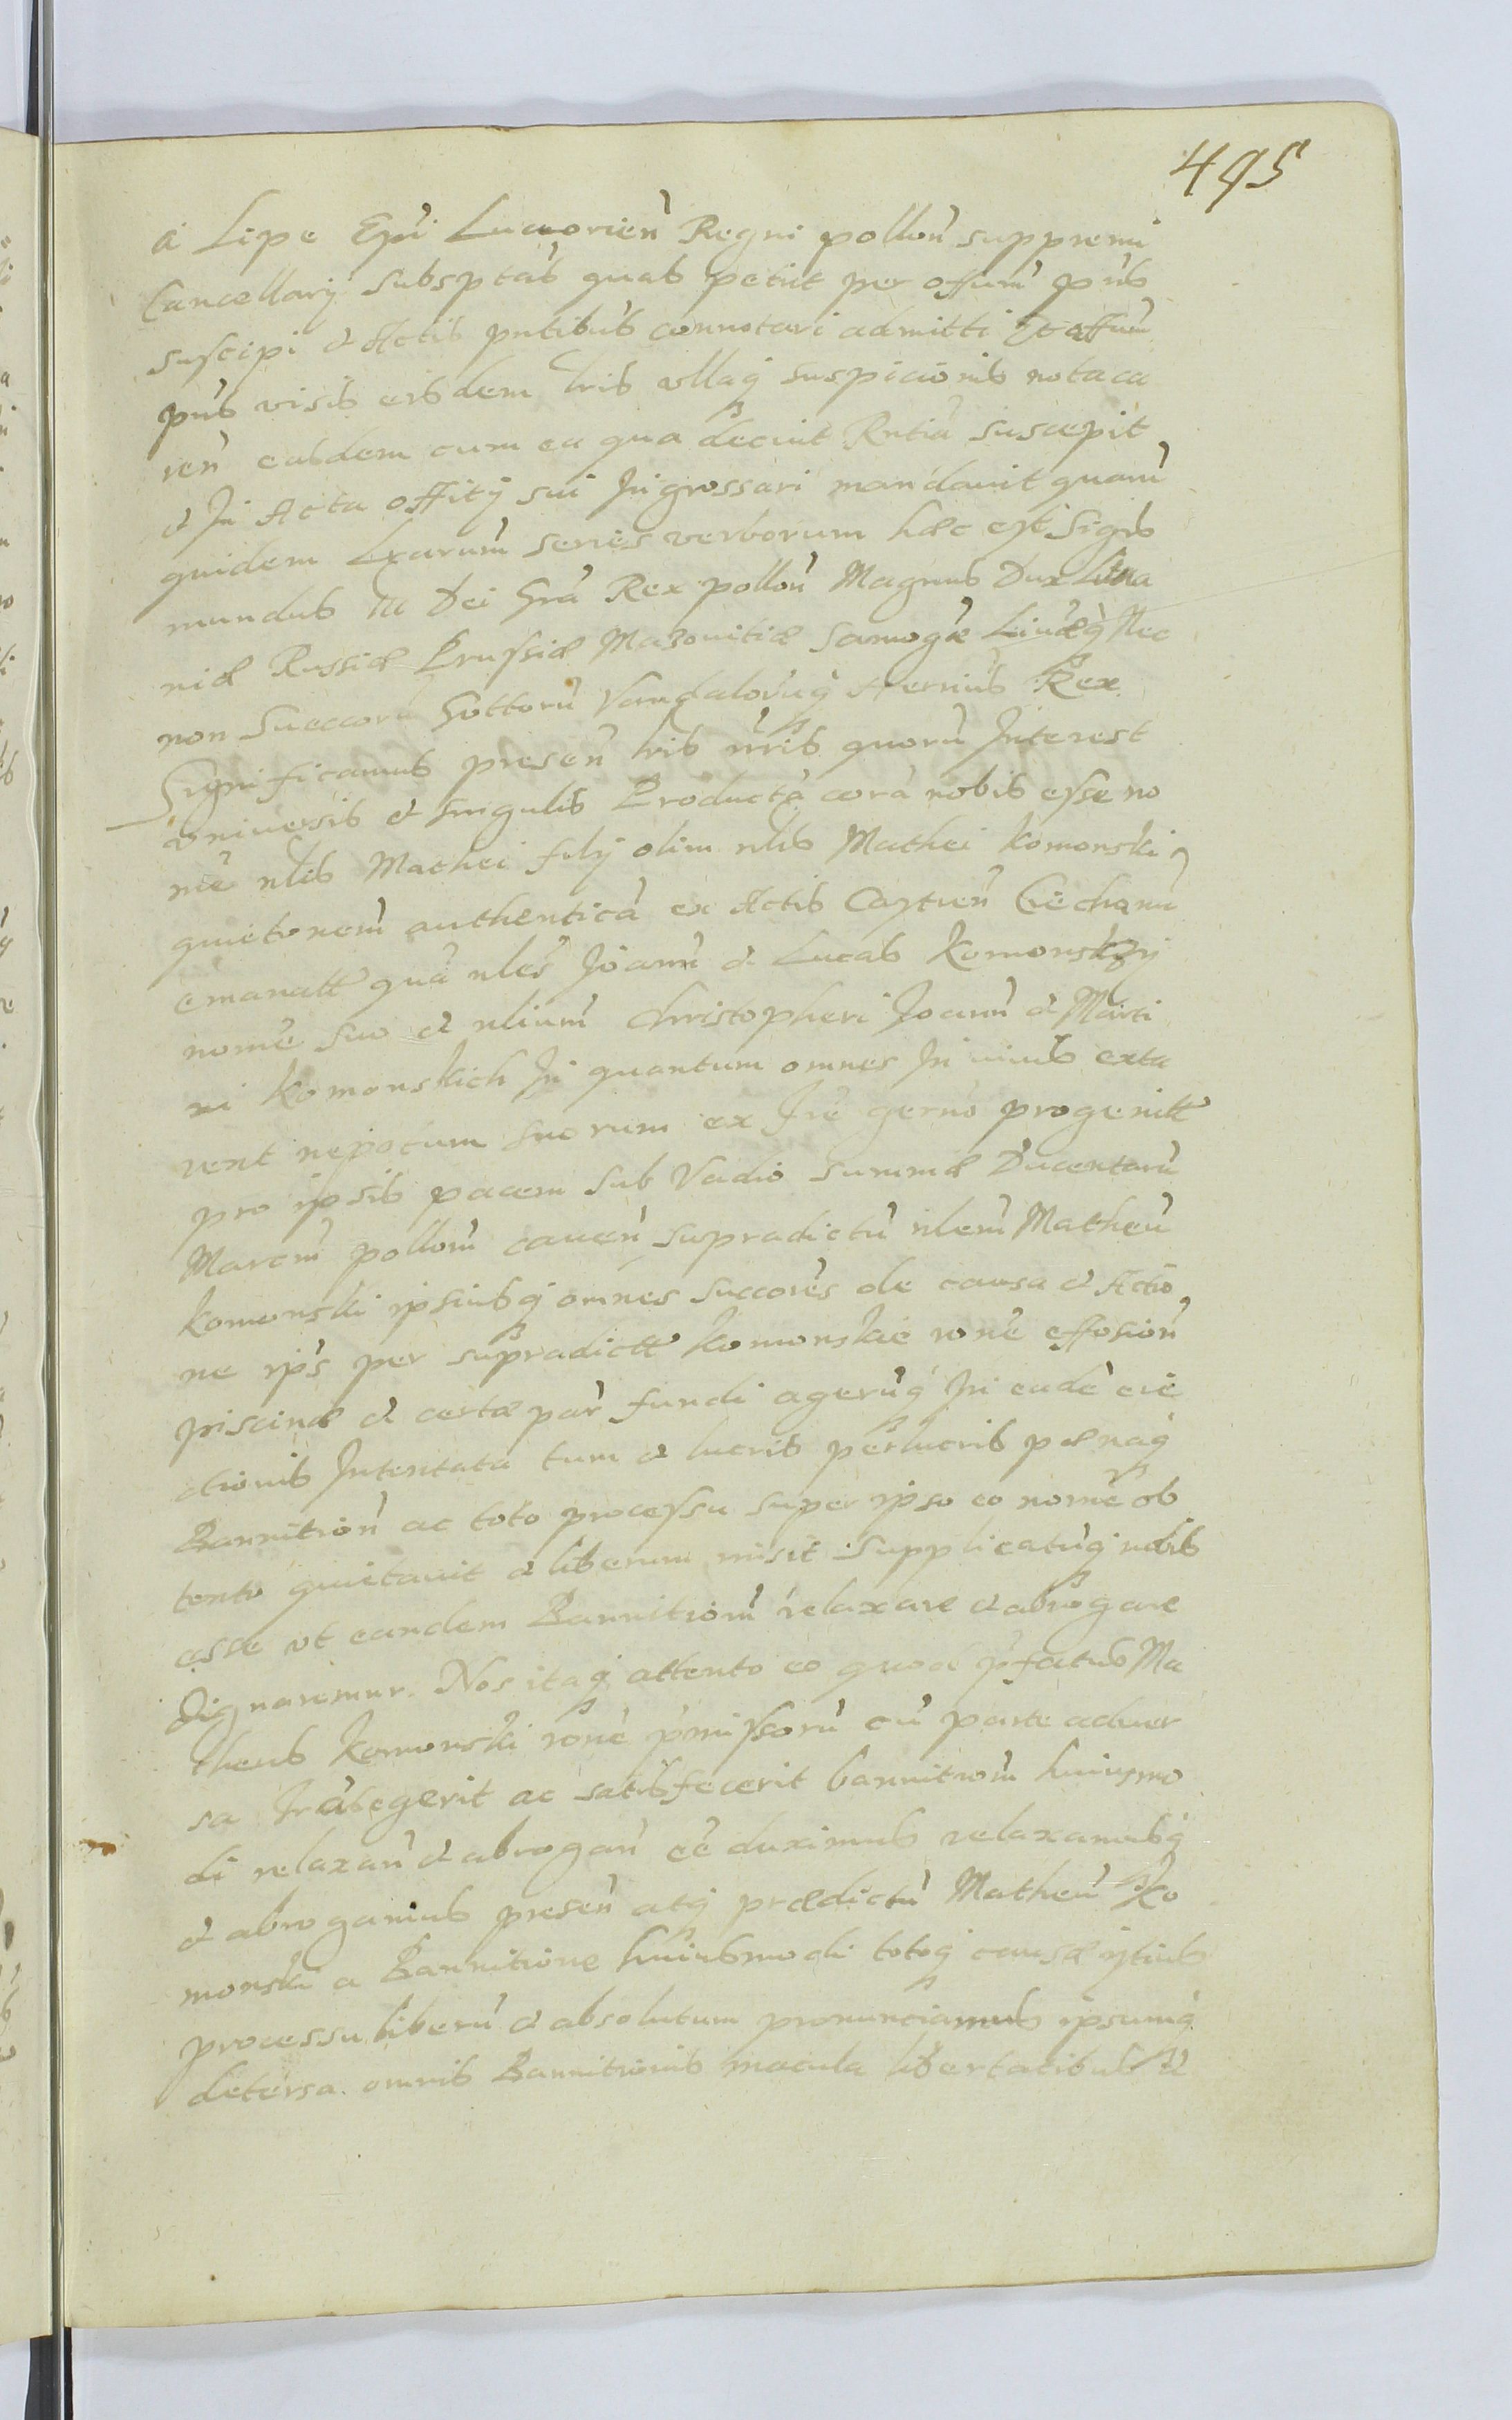 495
a Lipe Epi Luceorien Regni pollon suppremi
Cancellarij subsptas quas petiit per offum pns
suscipi & Actis pntibus connotari admitti Et offum
pns visis eisdem lris vllaq suspicionis nota ca
ren easdem cum ea qua decuit Rntia suscepit
& In Acta offitij sui Ingrossari mandauit quarum
quidem Lrarum series verborum hæc est Sigis
mundus III Dei Gra Rex pollon Magnus Dux Littua
niæ Russiæ Prussiæ Mazouitiæ Samogæ Liuæq Nec
non Sueccoru Gottoru Vandaloruq Hernius Rex
Significamus presen lris nris quoru Interest
vniuersis & singulis Producta cora nobis esse no
me nlis Mathei filij olim nlis Mathei Komorski
quietonem authentica ex Actis Castren Ciechann
emanatt qua nles Joann & Lucas Komorskij
nome suo & nlium Christopheri Joann & Marti
ni Komorskich In quantum omnes In viuis exta
rent nepotum suorum ex Fre gerno progenitt
pro ipsis pacem sub Vadio summæ Ducentaru
Marcm pollom cauen supradictu nlem Matheu
Komorski ipsiusq omnes succores de causa & Actio
ne ips per supradictt Komorskie rone effosion
piscinæ & certæ par fundi ageruq In eade ere
ctionis Intentata tum & lucris perlucris pænaq
Bannition ac toto processu super ipso eo nome ob
tento quietauit & liberum misit Supplicatuq nobis
esse vt eandem Bannitiom relaxare & abrogare
Dignaremur. Nos itaq attento eo quod pfatus Ma
theus Komorski rone pmissoru cu parte aduer
sa Trasegerit ac satisfecerit bannitiom huiusmo
di relaxan & abrogan ee duximus relaxamusq
& abrogamus presen atq prædictu Matheu Ko
morski a Bannitione huiusmodi totoq causæ istius
processu liberu & absolutum pronunciamus ipsumq
detersa omnis Bannitionis macula libertatibus &